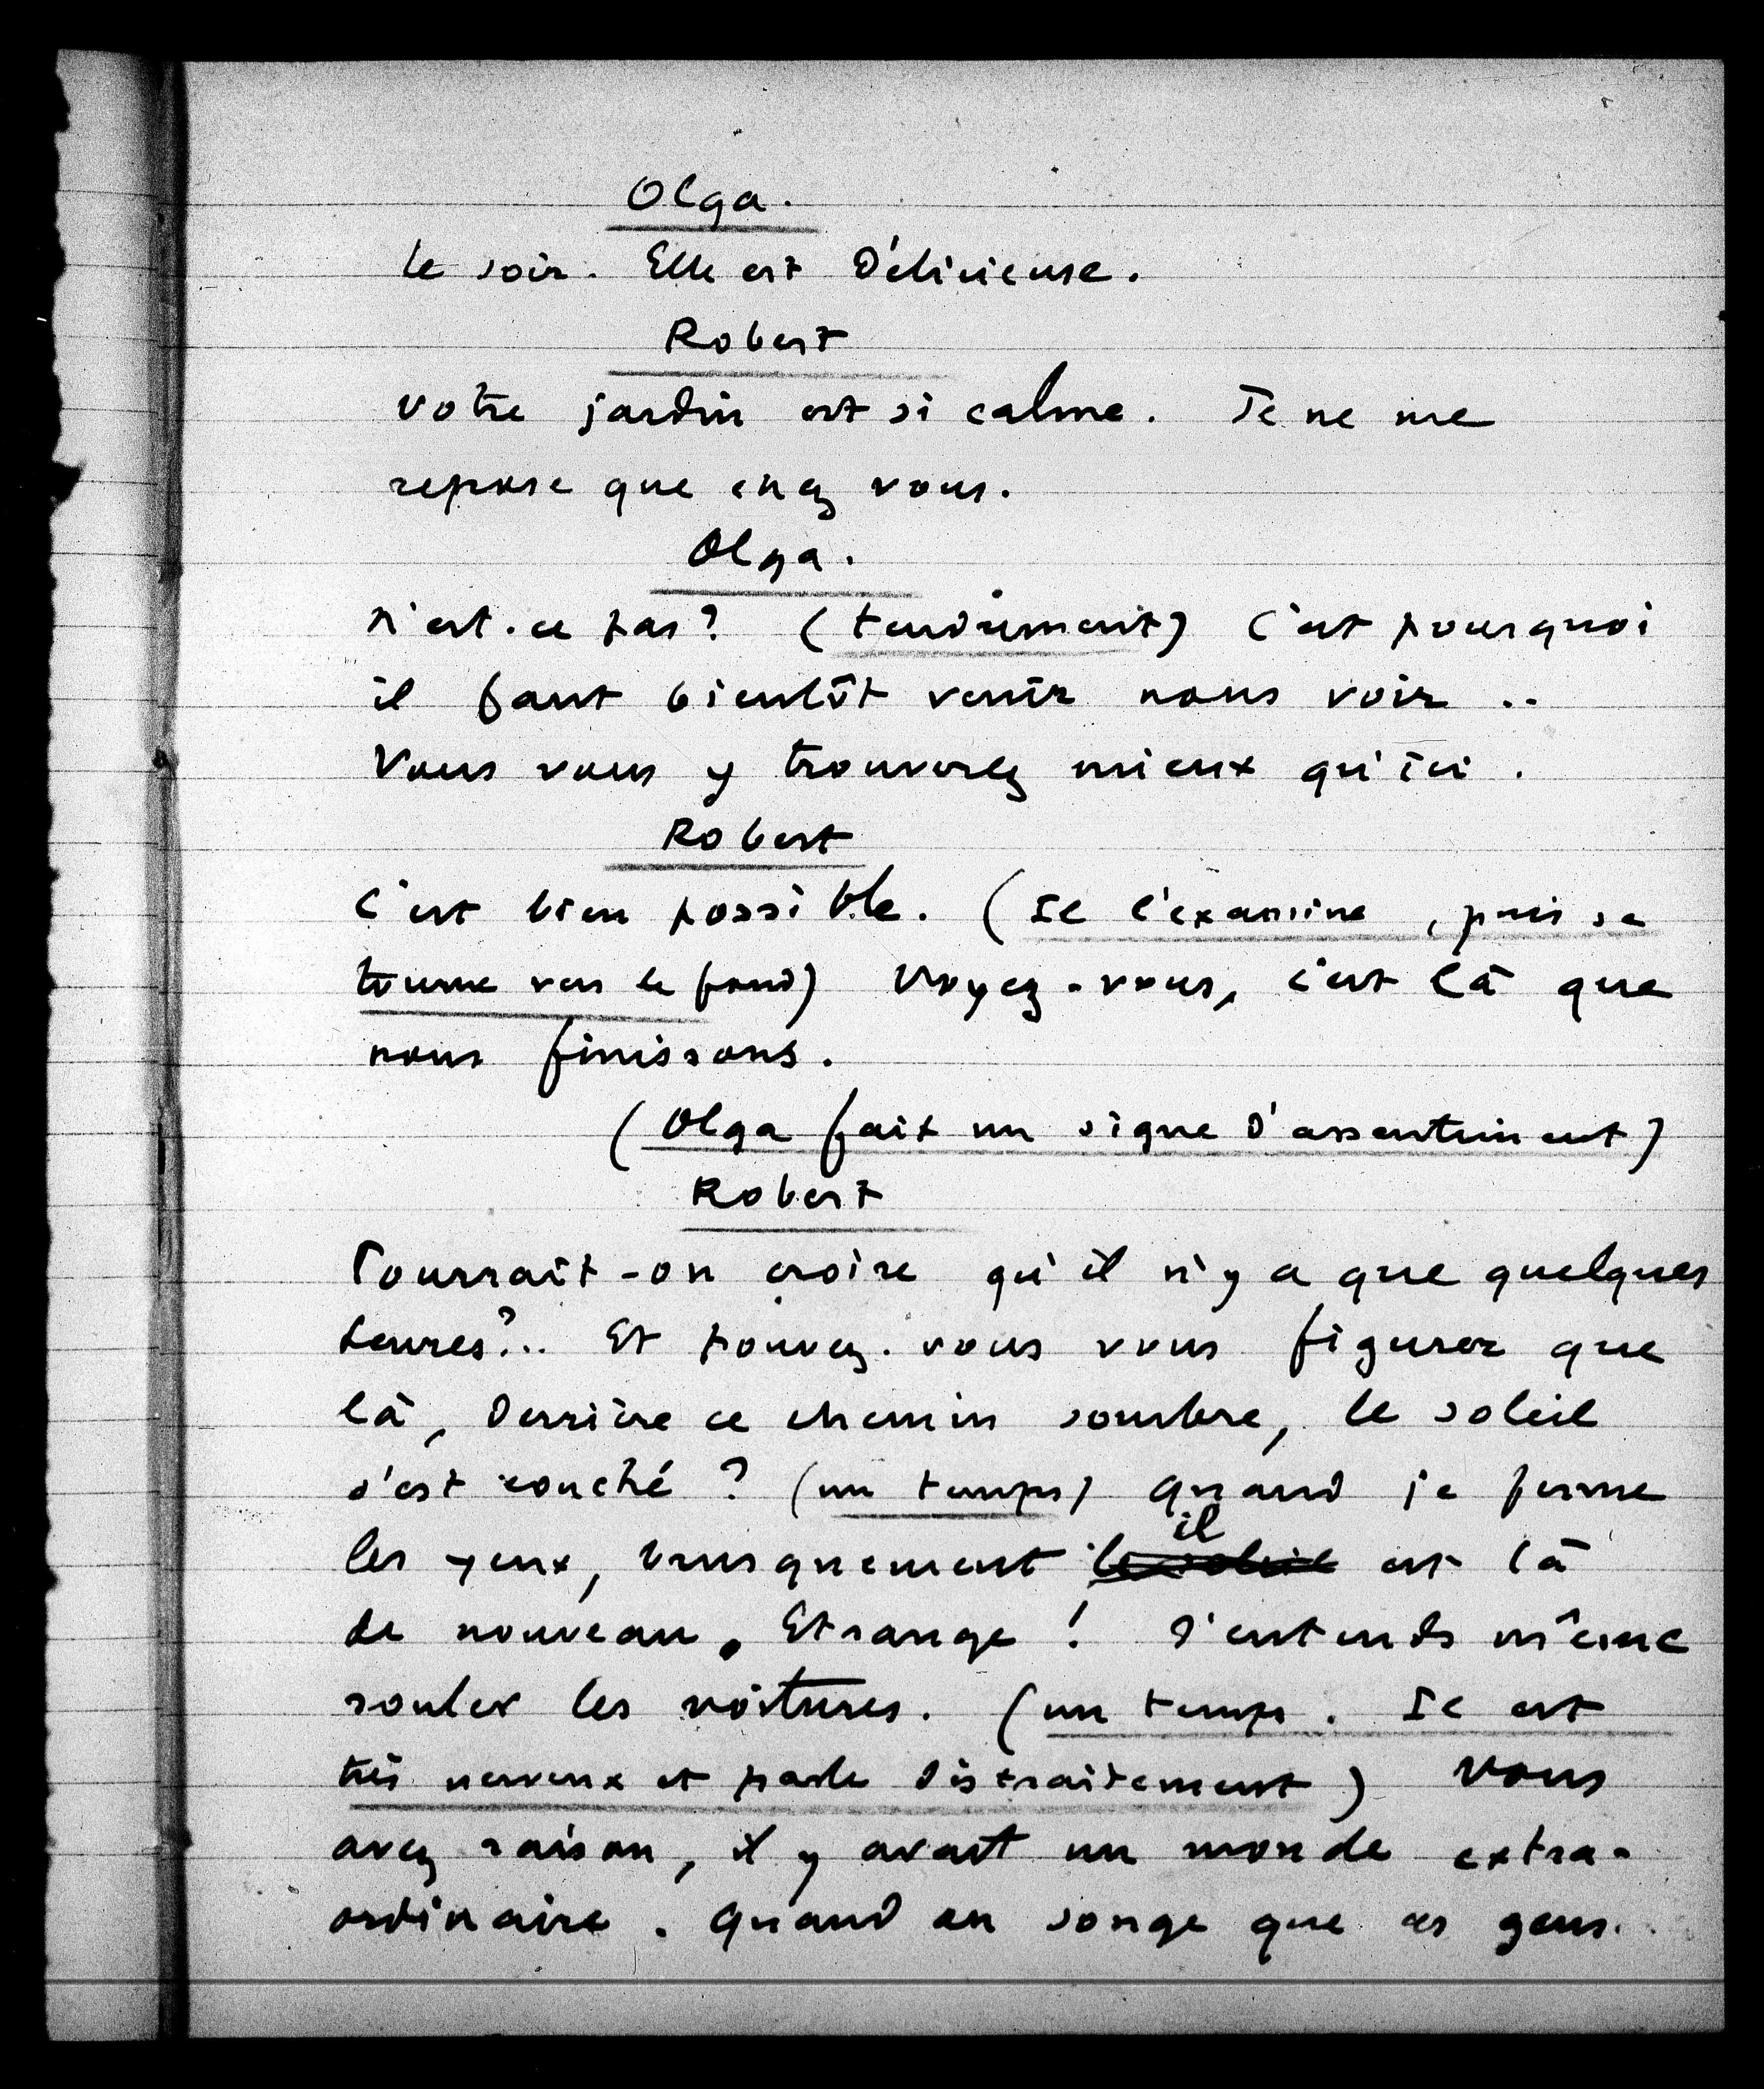 Olga.
Le soir. Elle est délicieuse.
Robert
Votre jardin est si calme. Je ne me
repose que chez vous.
Olga.
N'est-ce pas? (tendrement) C'est pourquoi
il faut bientôt venir nous voir ..
Vous vous y trouverez mieux qu'ici.
Robert
C'est bien possible. (Il l'examine, puis se
tourne vers le fond) Voyez-vous, c'est là que
nous finissons.
(Olga fait un signe d'assentiment)
Robert
Pourrait-on croire qu'il n'y a que quelques
heures?.. Et pouvez-vous vous figurer que
là, derrière ce chemin sombre, le soleil
s'est couché ? (un temps) Quand je ferme
les yeux, brusquement le soleil il est là
de nouveau. Etrange ! J'entends même
rouler les voitures. (un temps. Il est
très nerveux et parle distraitement) Vous
avez raison, il y avait un monde extra-
ordinaire. Quand on songe que ces gens..